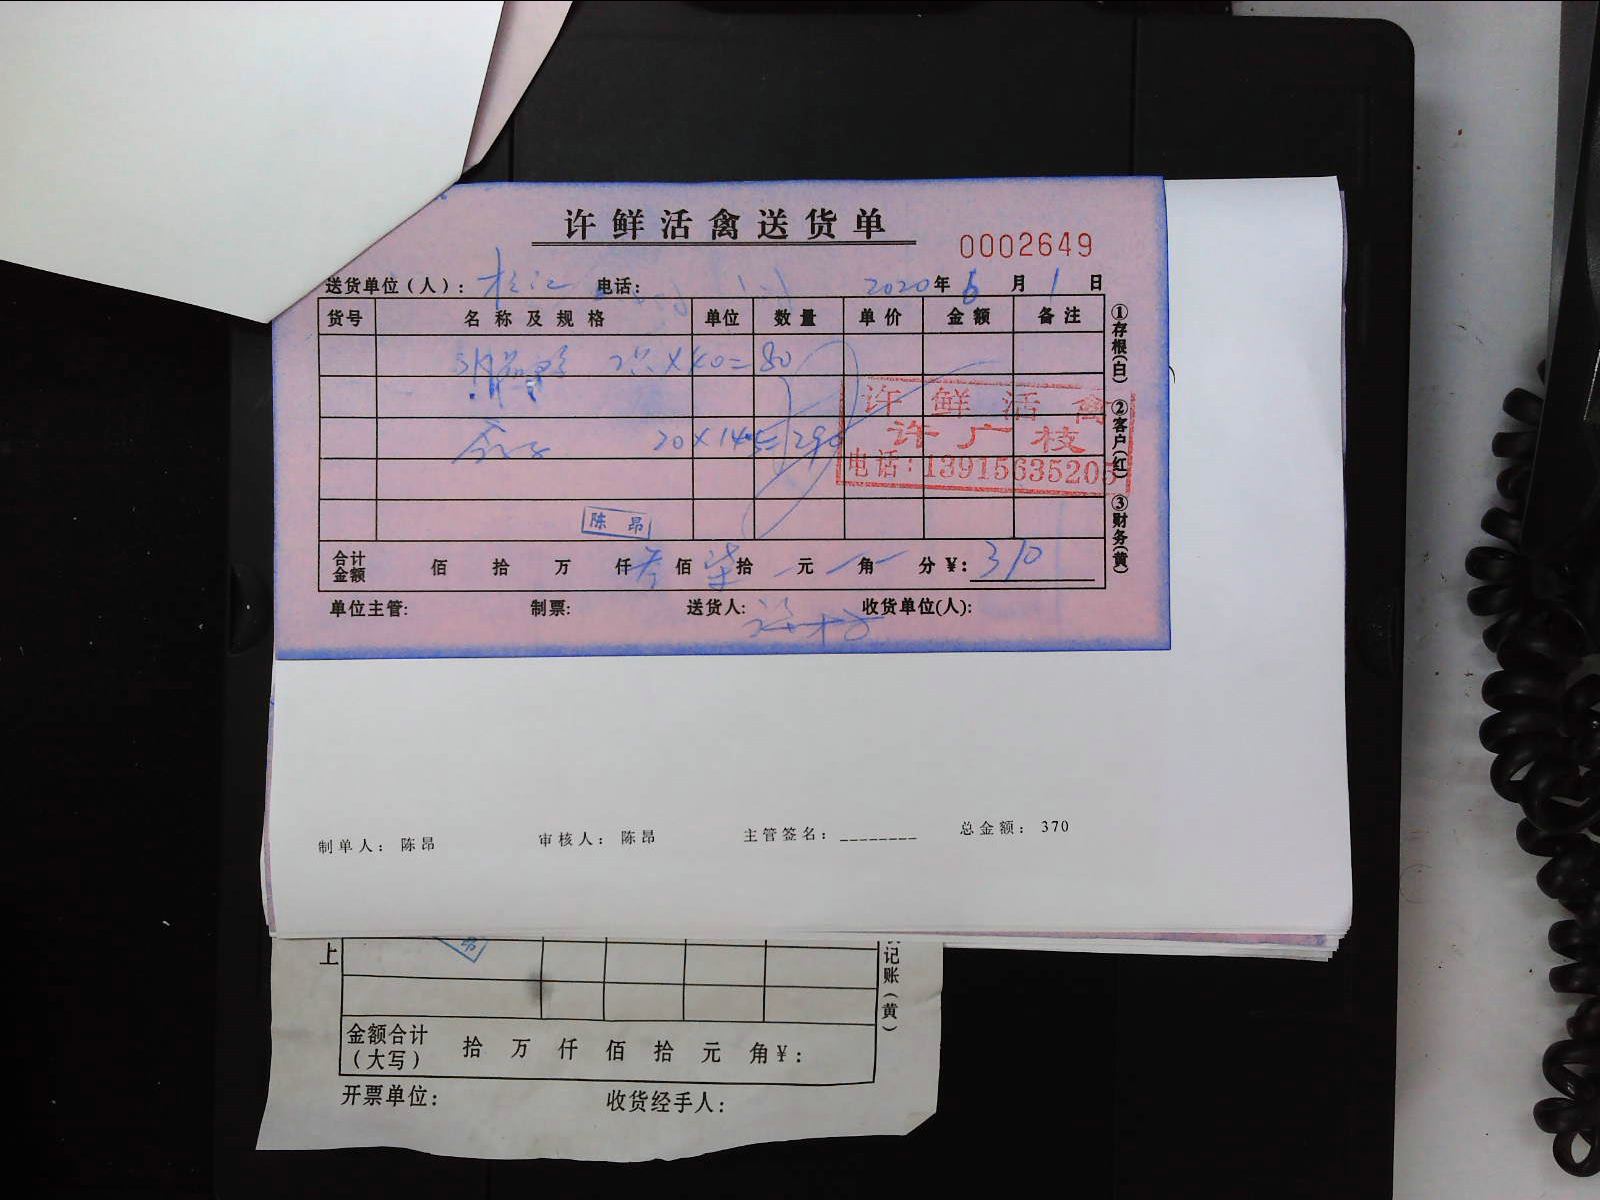 许鲜活禽送货单
0002649
送货单位（人）： 松江 电话： 2020年6月1日
货号 名称及规格 单位 数量 单价 金额 备注
2只×40=80
20×14.5=290
许鲜活禽
许广枝
电话：13915635205
陈昂
合计金额 佰 拾 万 仟叁佰柒拾 元 角 分¥：370
单位主管： 制票： 送货人： 收货单位(人)：
①存根(白) ②客户(红) ③财务(黄)
制单人： 陈昂 审核人： 陈昂 主管签名：________ 总金额： 370
上
昂
记账（黄）
金额合计（大写） 拾 万 仟 佰 拾 元 角¥：
开票单位： 收货经手人：